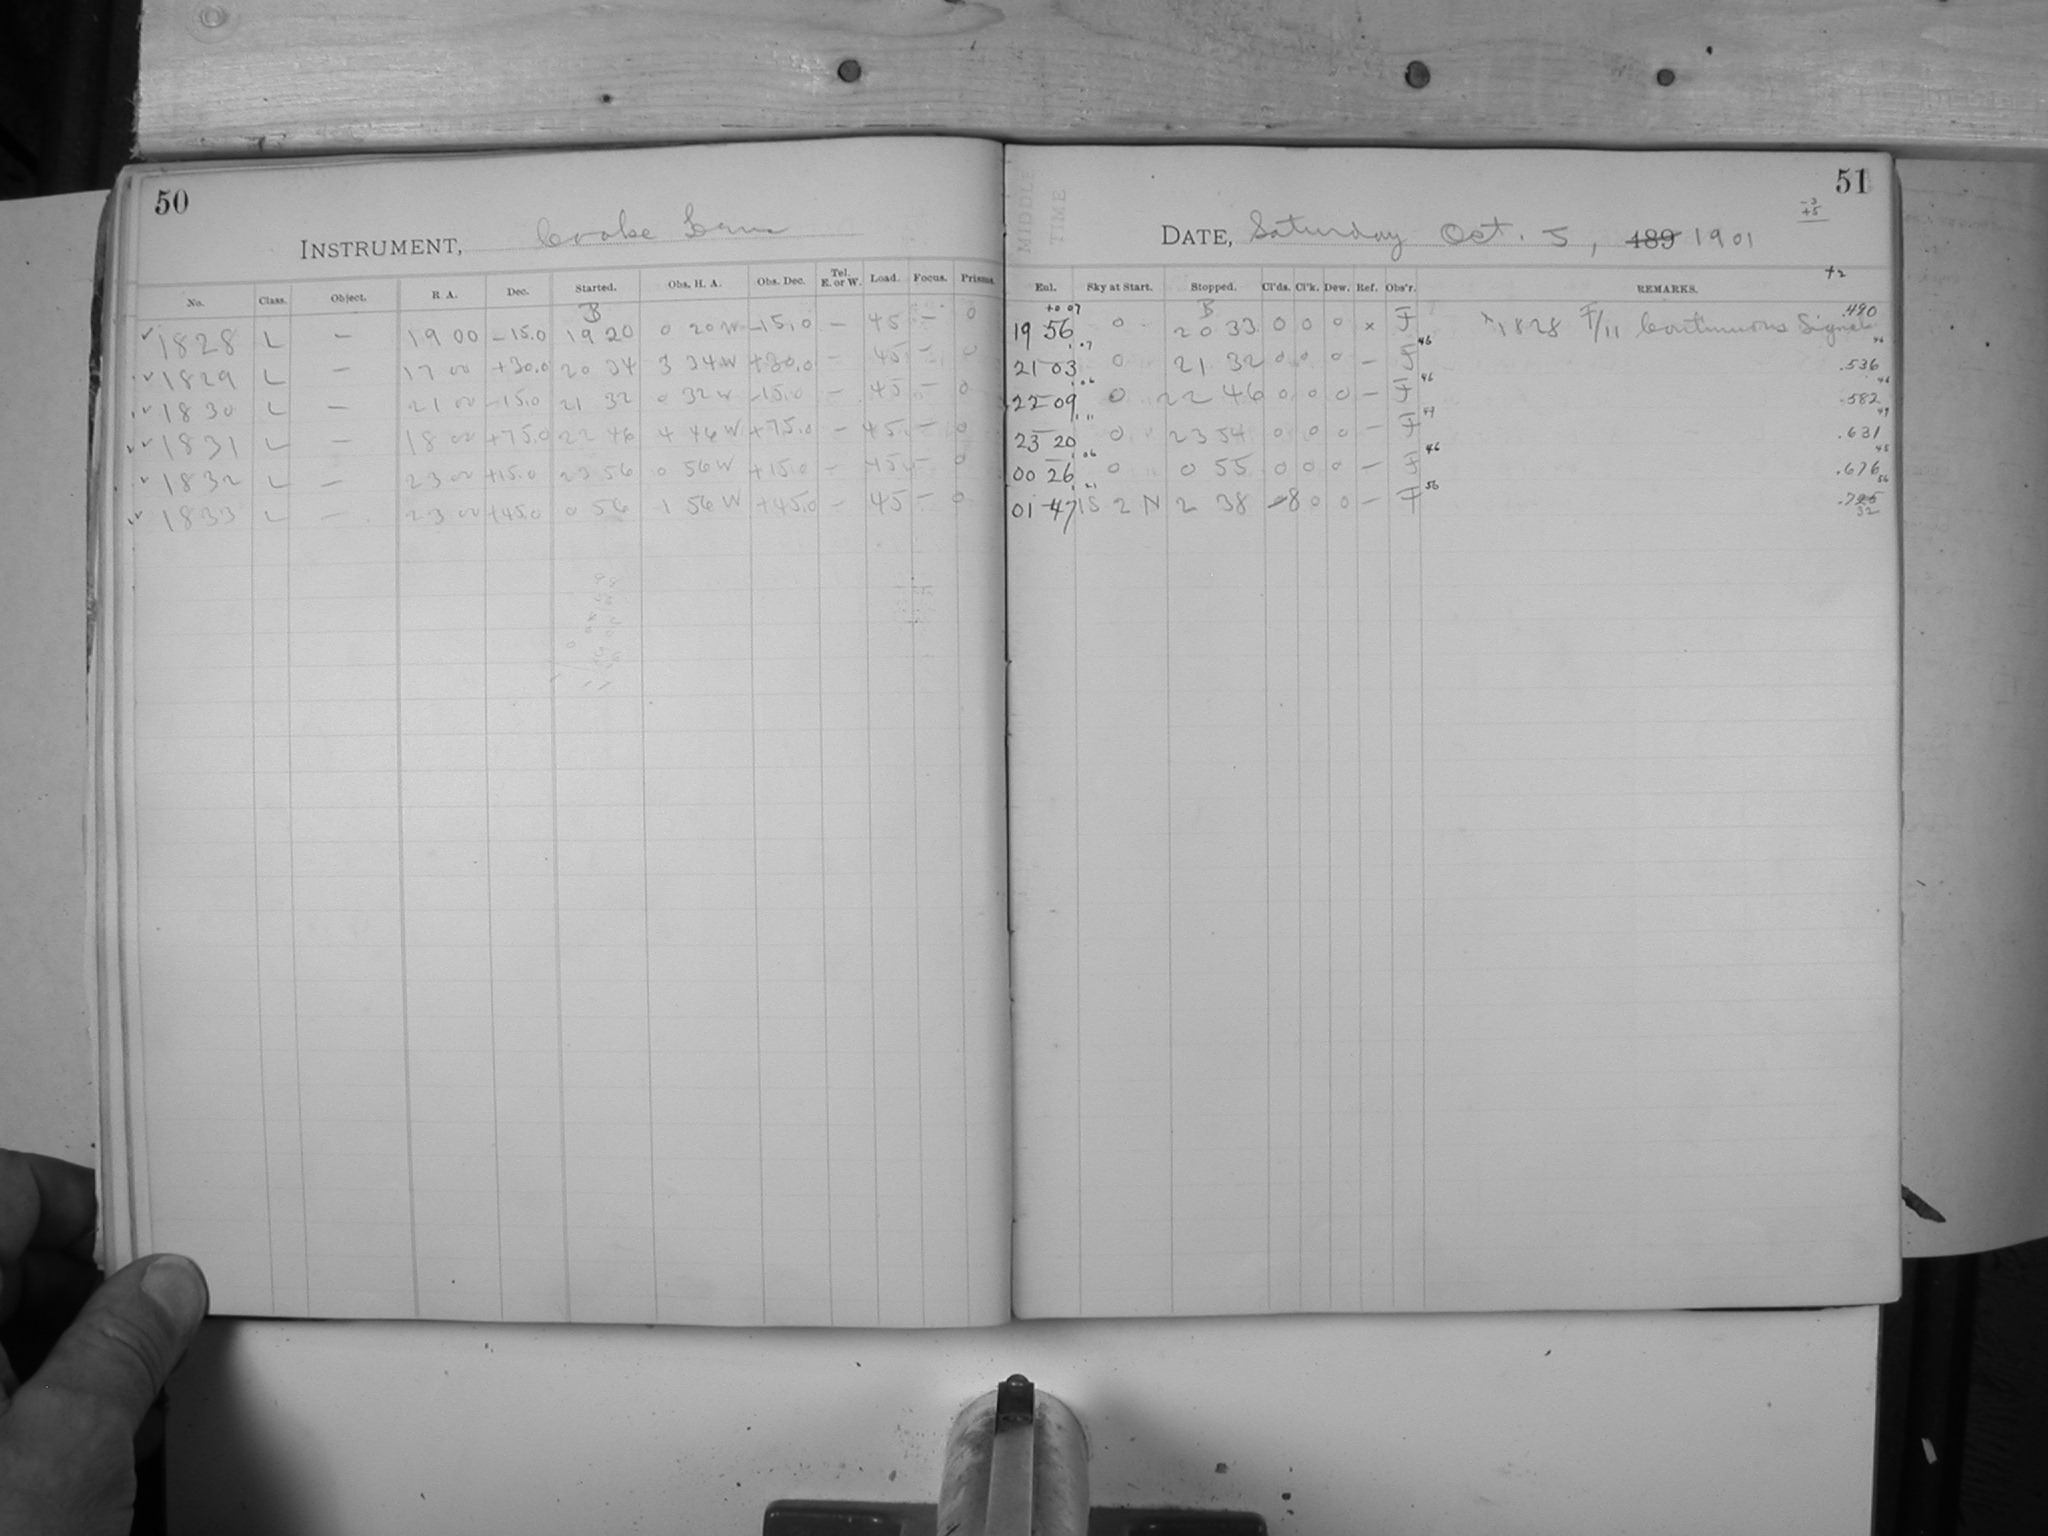 50
INSTRUMENT, Cooke Lens
No. Class. Object. R. A. Dec. Started. Obs. H. A. Obs. Dec. Tel. E. or W. Load. Focus. Prisms.
B
1828 L — 19 00 −15.0 19 20 0 20 W −15.0 — 45 — 0
1829 L — 17 00 +30.0 20 34 3 34 W +30.0 — 45 — 0
1830 L — 21 00 −15.0 21 32 0 32 W −15.0 — 45 — 0
1831 L — 18 00 +75.0 22 46 4 46 W +75.0 — 45 — 0
1832 L — 23 00 +15.0 23 56 0 56 W +15.0 — 45 — 0
1833 L — 23 00 +45.0 0 56 1 56 W +45.0 — 45 — 0
51
−3
+5
MIDDLE TIME
DATE, Saturday Oct. 5, 189 1901
+2
Eul. Sky at Start. Stopped. Cl'ds. Cl'k. Dew. Ref. Obs'r. REMARKS.
+0 07 B
19 56 0 20 33 0 0 0 x F x 1828 F/11 Continuous Signals .490
21 03 0 21 32 0 0 0 — F .536
22 09 0 22 46 0 0 0 — F .582
23 20 0 23 54 0 0 0 — F .631
00 26 0 0 55 0 0 0 — F .676
01 47 1S 2 N 2 38 8 0 0 — F
32